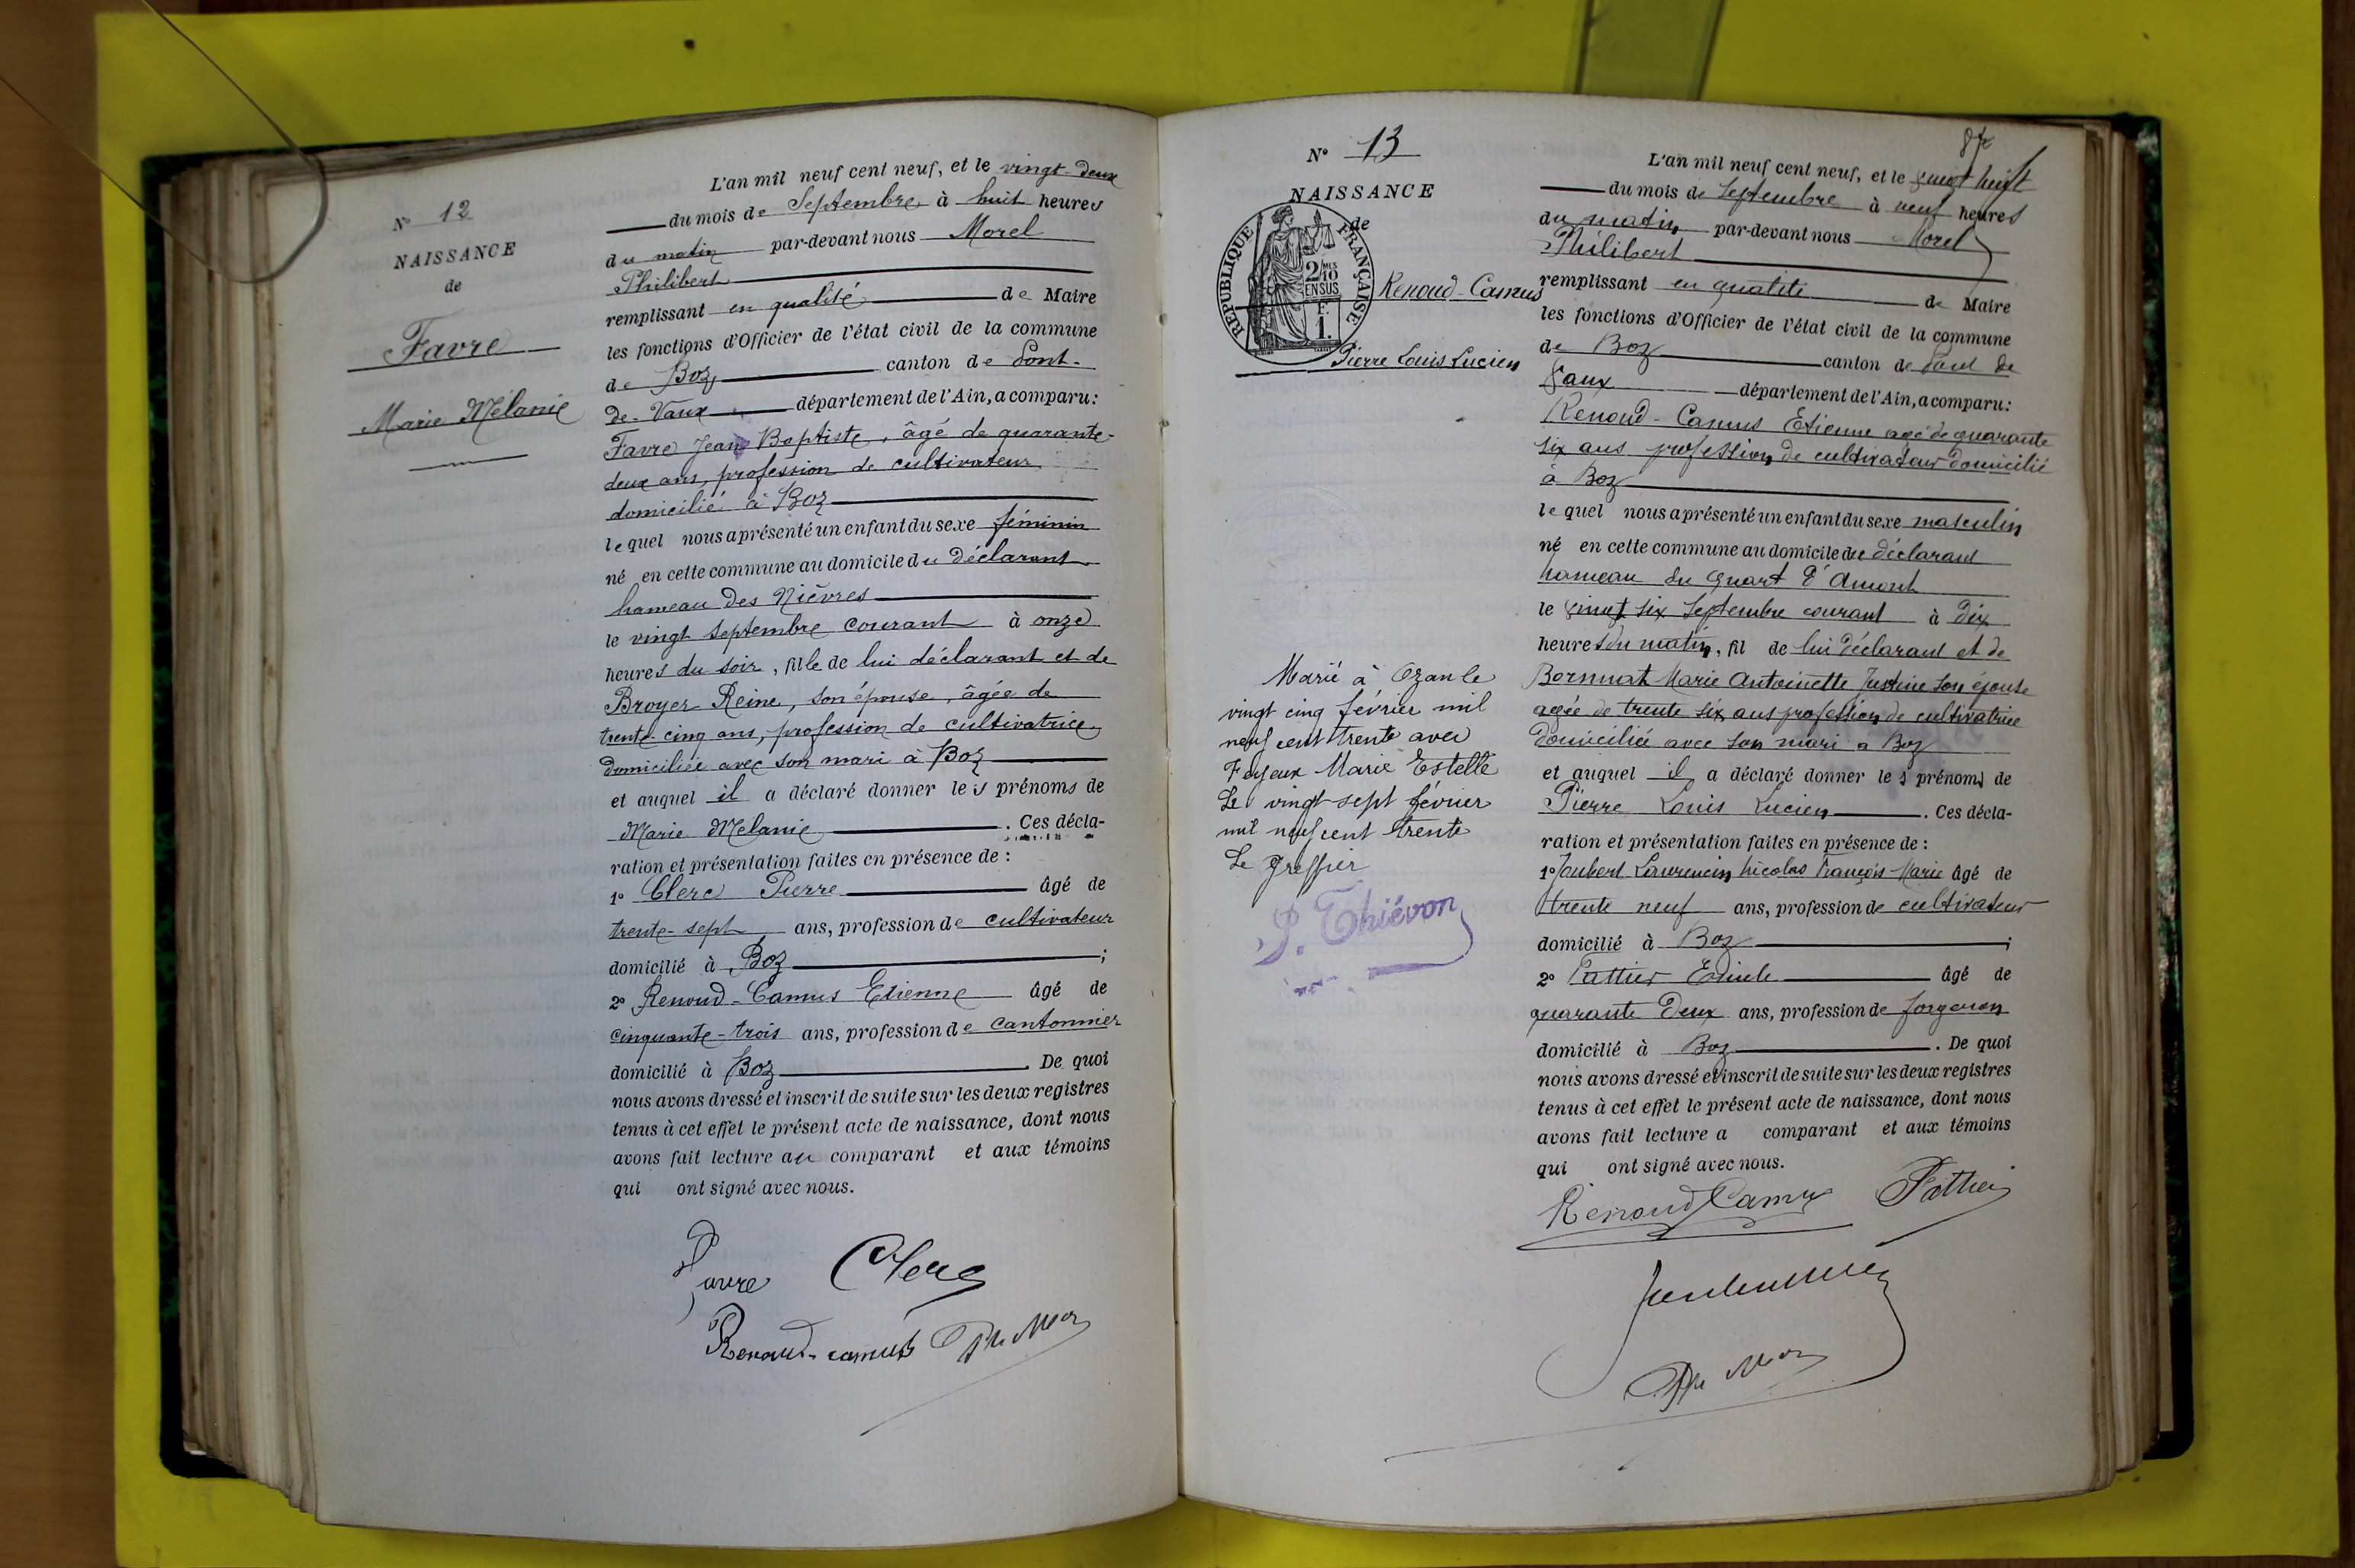 N° 12
NAISSANCE
de
Favre
Marie Mélanie
L'an mil neuf cent neuf, et le vingt-deux
du mois de Septembre à huit heures
du matin par-devant nous Morel
Philibert
remplissant en qualité de Maire
les fonctions d'Officier de l'état civil de la commune
de Boz canton de Pont-
de-Vaux département de l'Ain, a comparu:
Favre Jean Baptiste, âgé de quarante-
deux ans, profession de cultivateur
domicilié à Boz
lequel nous a présenté un enfant du sexe féminin
né en cette commune au domicile du déclarant
hameau des Nièvres
le vingt septembre courant à onze
heures du soir, fille de lui déclarant et de
Broyer Reine, son épouse, âgée de
trente-cinq ans, profession de cultivatrice
domiciliée avec son mari à Boz
et auquel il a déclaré donner les prénoms de
Marie Mélanie. Ces décla-
ration et présentation faites en présence de :
1° Clerc Pierre âgé de
trente-sept ans, profession de cultivateur
domicilié à Boz ;
2° Renoud-Camus Etienne âgé de
cinquante-trois ans, profession de cantonnier
domicilié à Boz. De quoi
nous avons dressé et inscrit de suite sur les deux registres
tenus à cet effet le présent acte de naissance, dont nous
avons fait lecture au comparant et aux témoins
qui ont signé avec nous.
Favre Clerc
Renoud-camus Ph Morel
N° 13
NAISSANCE
de
RÉPUBLIQUE FRANÇAISE
2/10 MES
EN SUS
F.
1.
Renoud-Camus
Pierre Louis Lucien
Marié à Ozan le
vingt cinq février mil
neuf cent trente avec
Fayeux Marie Estelle
Le vingt-sept février
mil neuf cent trente
Le Greffier
P. Thiévon
87
L'an mil neuf cent neuf, et le vingt huit
du mois de Septembre à neuf heures
du matin par-devant nous Morel
Philibert
remplissant en qualité de Maire
les fonctions d'Officier de l'état civil de la commune
de Boz canton de Pont de
Vaux département de l'Ain, a comparu:
Renoud-Camus Etienne agé de quarante
six ans profession de cultivateur domicilié
à Boz
lequel nous a présenté un enfant du sexe masculin
né en cette commune au domicile du déclarant
hameau du Quart d'Amont
le vingt six Septembre courant à dix
heures du matin, fil de lui déclarant et de
Bornuat Marie Antoinette Justine son épouse
agée de trente six ans profession de cultivatrice
domiciliée avec son mari a Boz
et auquel il a déclaré donner les prénoms de
Pierre Louis Lucien. Ces décla-
ration et présentation faites en présence de :
1° Joubert Laurencin Nicolas François Marie âgé de
trente neuf ans, profession de cultivateur
domicilié à Boz ;
2° Pattier Emile âgé de
quarante deux ans, profession de forgeron
domicilié à Boz. De quoi
nous avons dressé et inscrit de suite sur les deux registres
tenus à cet effet le présent acte de naissance, dont nous
avons fait lecture a comparant et aux témoins
qui ont signé avec nous.
Renoud Camus Pattier
Ph Morel